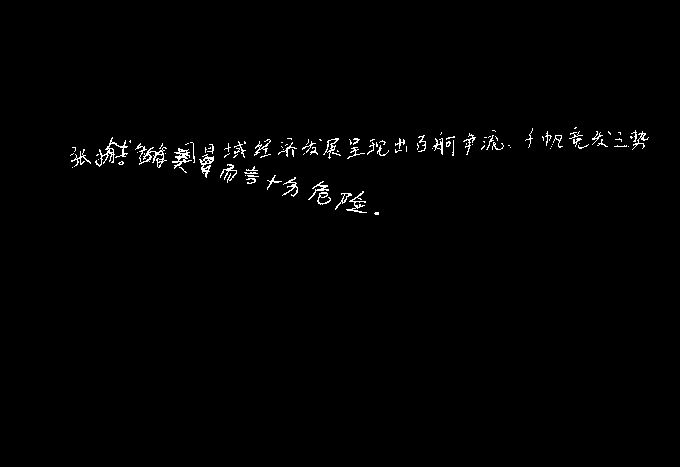 县域经济发展呈现出百舸争流、千帆竞发之势
而言十分危险.